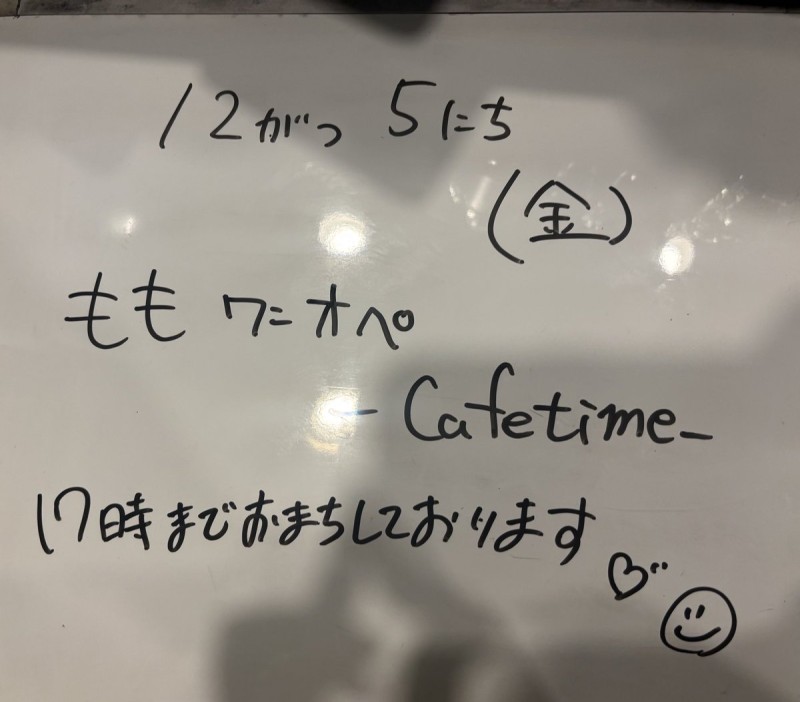 12がつ 5にち
(金)
もも ワニオペ
- Cafetime-
17時までおまちしております